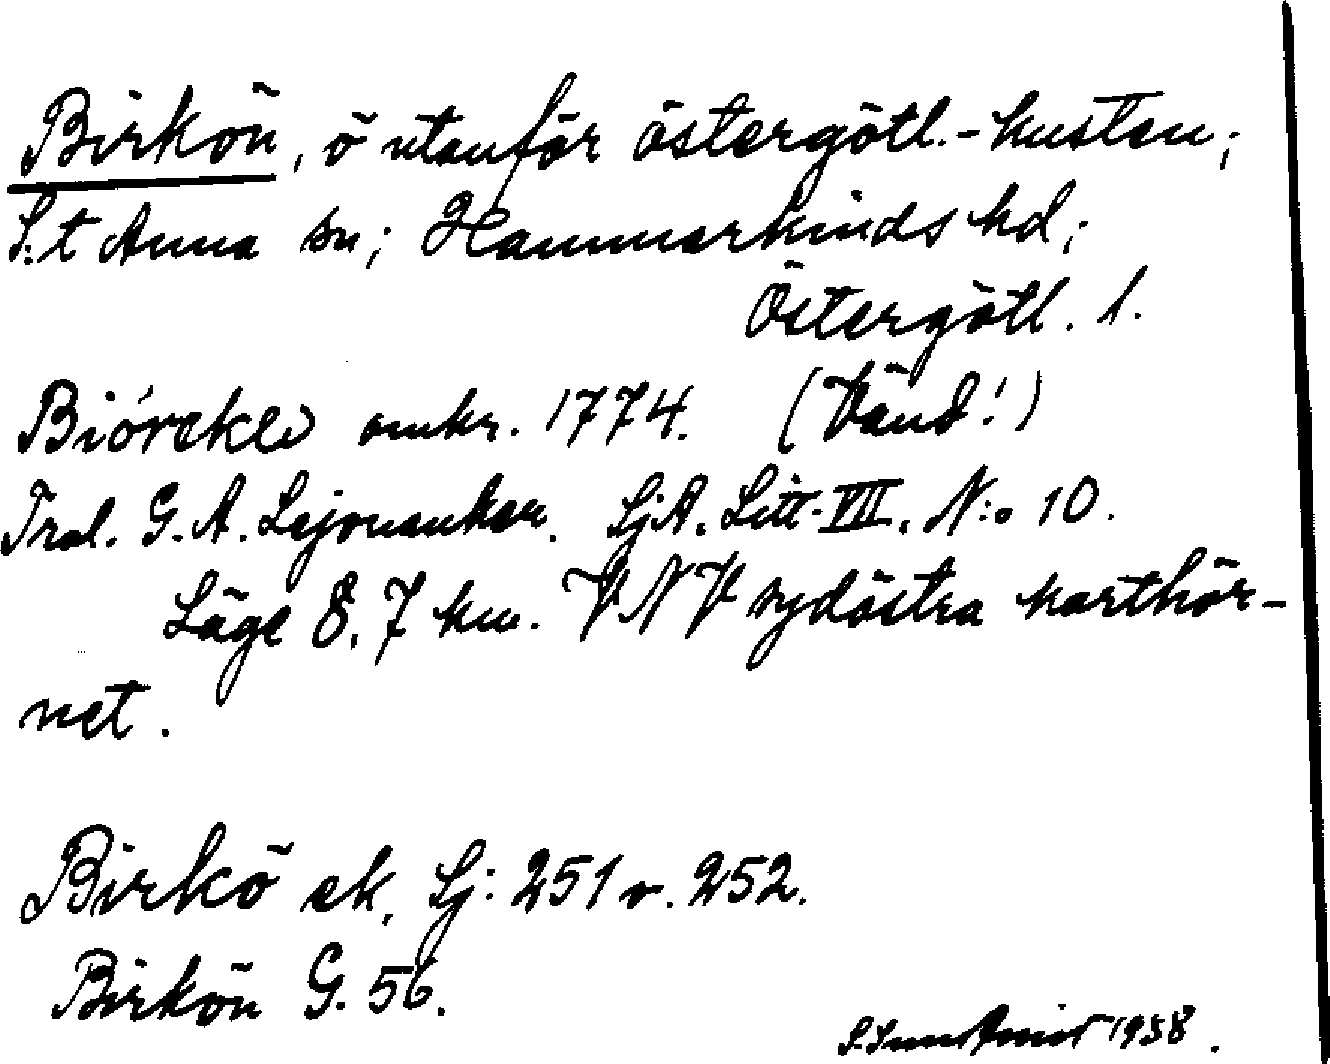 Birkön, ö utanför östergötl.-kusten;
S:t Anna sn; Hammarkinds hd;
Östergötl. l.
Biórckö omkr. 1774. (Vänd!)
Trol. G. A. Lejonanker. SjA. Litt-VII. N:o 10.
Läge 8,7 km. VNV sydöstra karthör-
net.
Birkö ek. Sj: 251 o. 252.
Birkön G. 56.
1958.